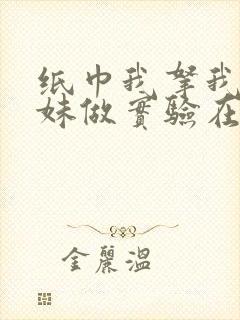 纸巾我拏我
妹做實驗在
金麗溫